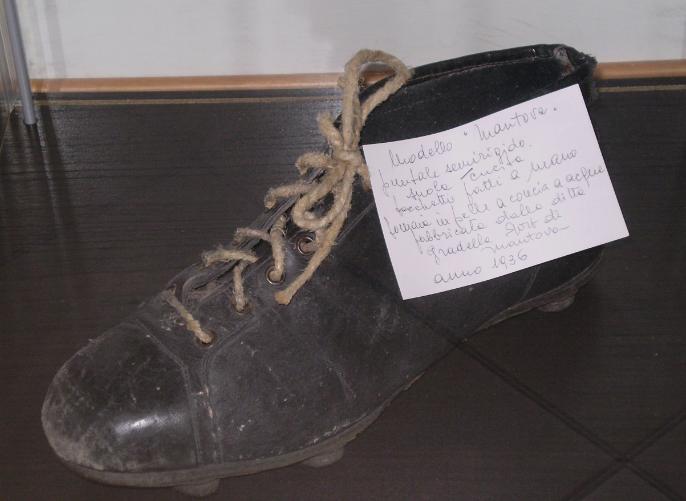 Modello "Mantova"
puntale semirigido.
suola cucita
tacchetti fatti a mano
tomaia in pelle a concia a acqua
fabbricata dalla ditta
Gradella Sport di
Mantova
anno 1936